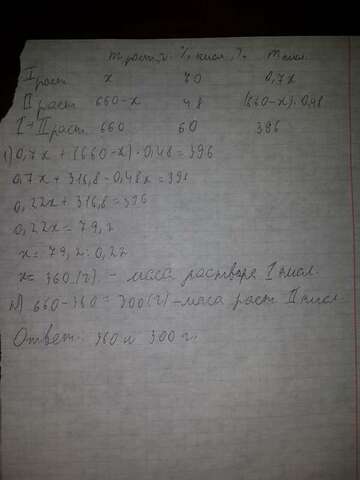 m раст, г. % кисл, % m кисл.
I раст x 70 0,7x
II раст 660-x 48 (660-x)·0,48
I+II раст 660 60 396
1) 0,7x + (660-x)·0,48=396
0,7x+316,8-0,48x=396
0,22x+316,8=396
0,22x=79,2
x=79,2:0,22
x=360 (г) - маса раствора I кисл.
2) 660-360=300(г)-маса раст II кисл.
Ответ: 360 и 300 г.